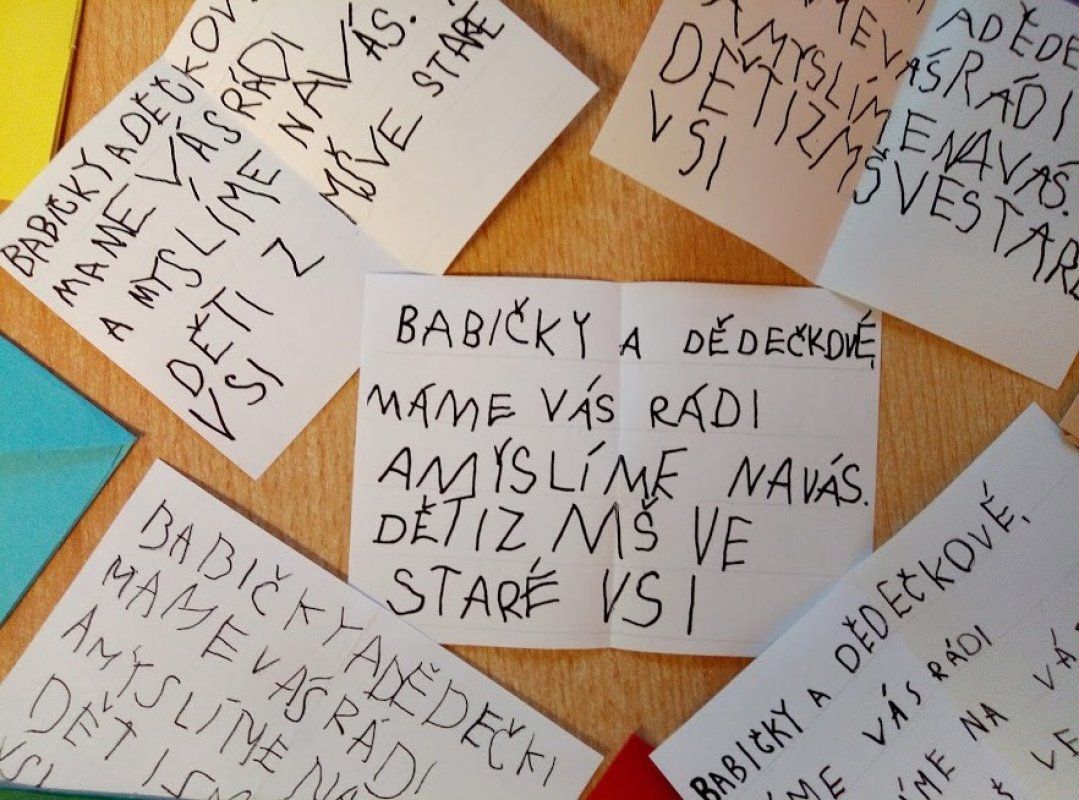 BABIČKY ADĚČKOV
MAME VÁSRÁDI
A MYSLÍME NAVÁS.
DĚTI Z MŠVE STARÉ
VSI
ADĚDE
MEVÁŠRÁDI
AMYSLÍMENAVÁS.
DĚTIZMŠVESTARÉ
VSI
BABIČKY A DĚDEČKOVÉ,
MÁME VÁS RÁDI
AMÝSLÍME NAVÁS.
DĚTIZ MŠ VE
STARÉ VSI
BABIČKYADĚDEČKI
MAMEVAŠRÁDI
AMÝSLÍMENA
DĚTI
VSI
BABIČKY A DĚDEČKOVÉ,
ME VÁS RÁDI
ÍME NA VÁ
Š VE